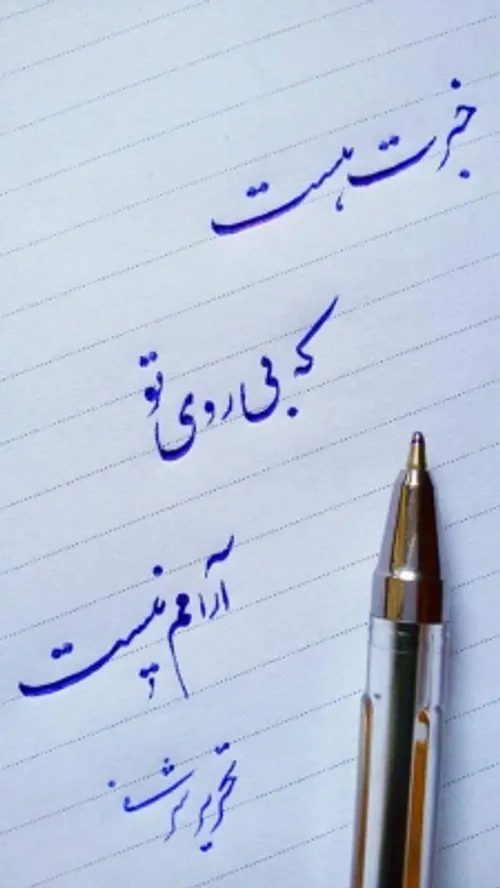 خبرت هست
که بی روی تو
آرامم نیست
تحریر